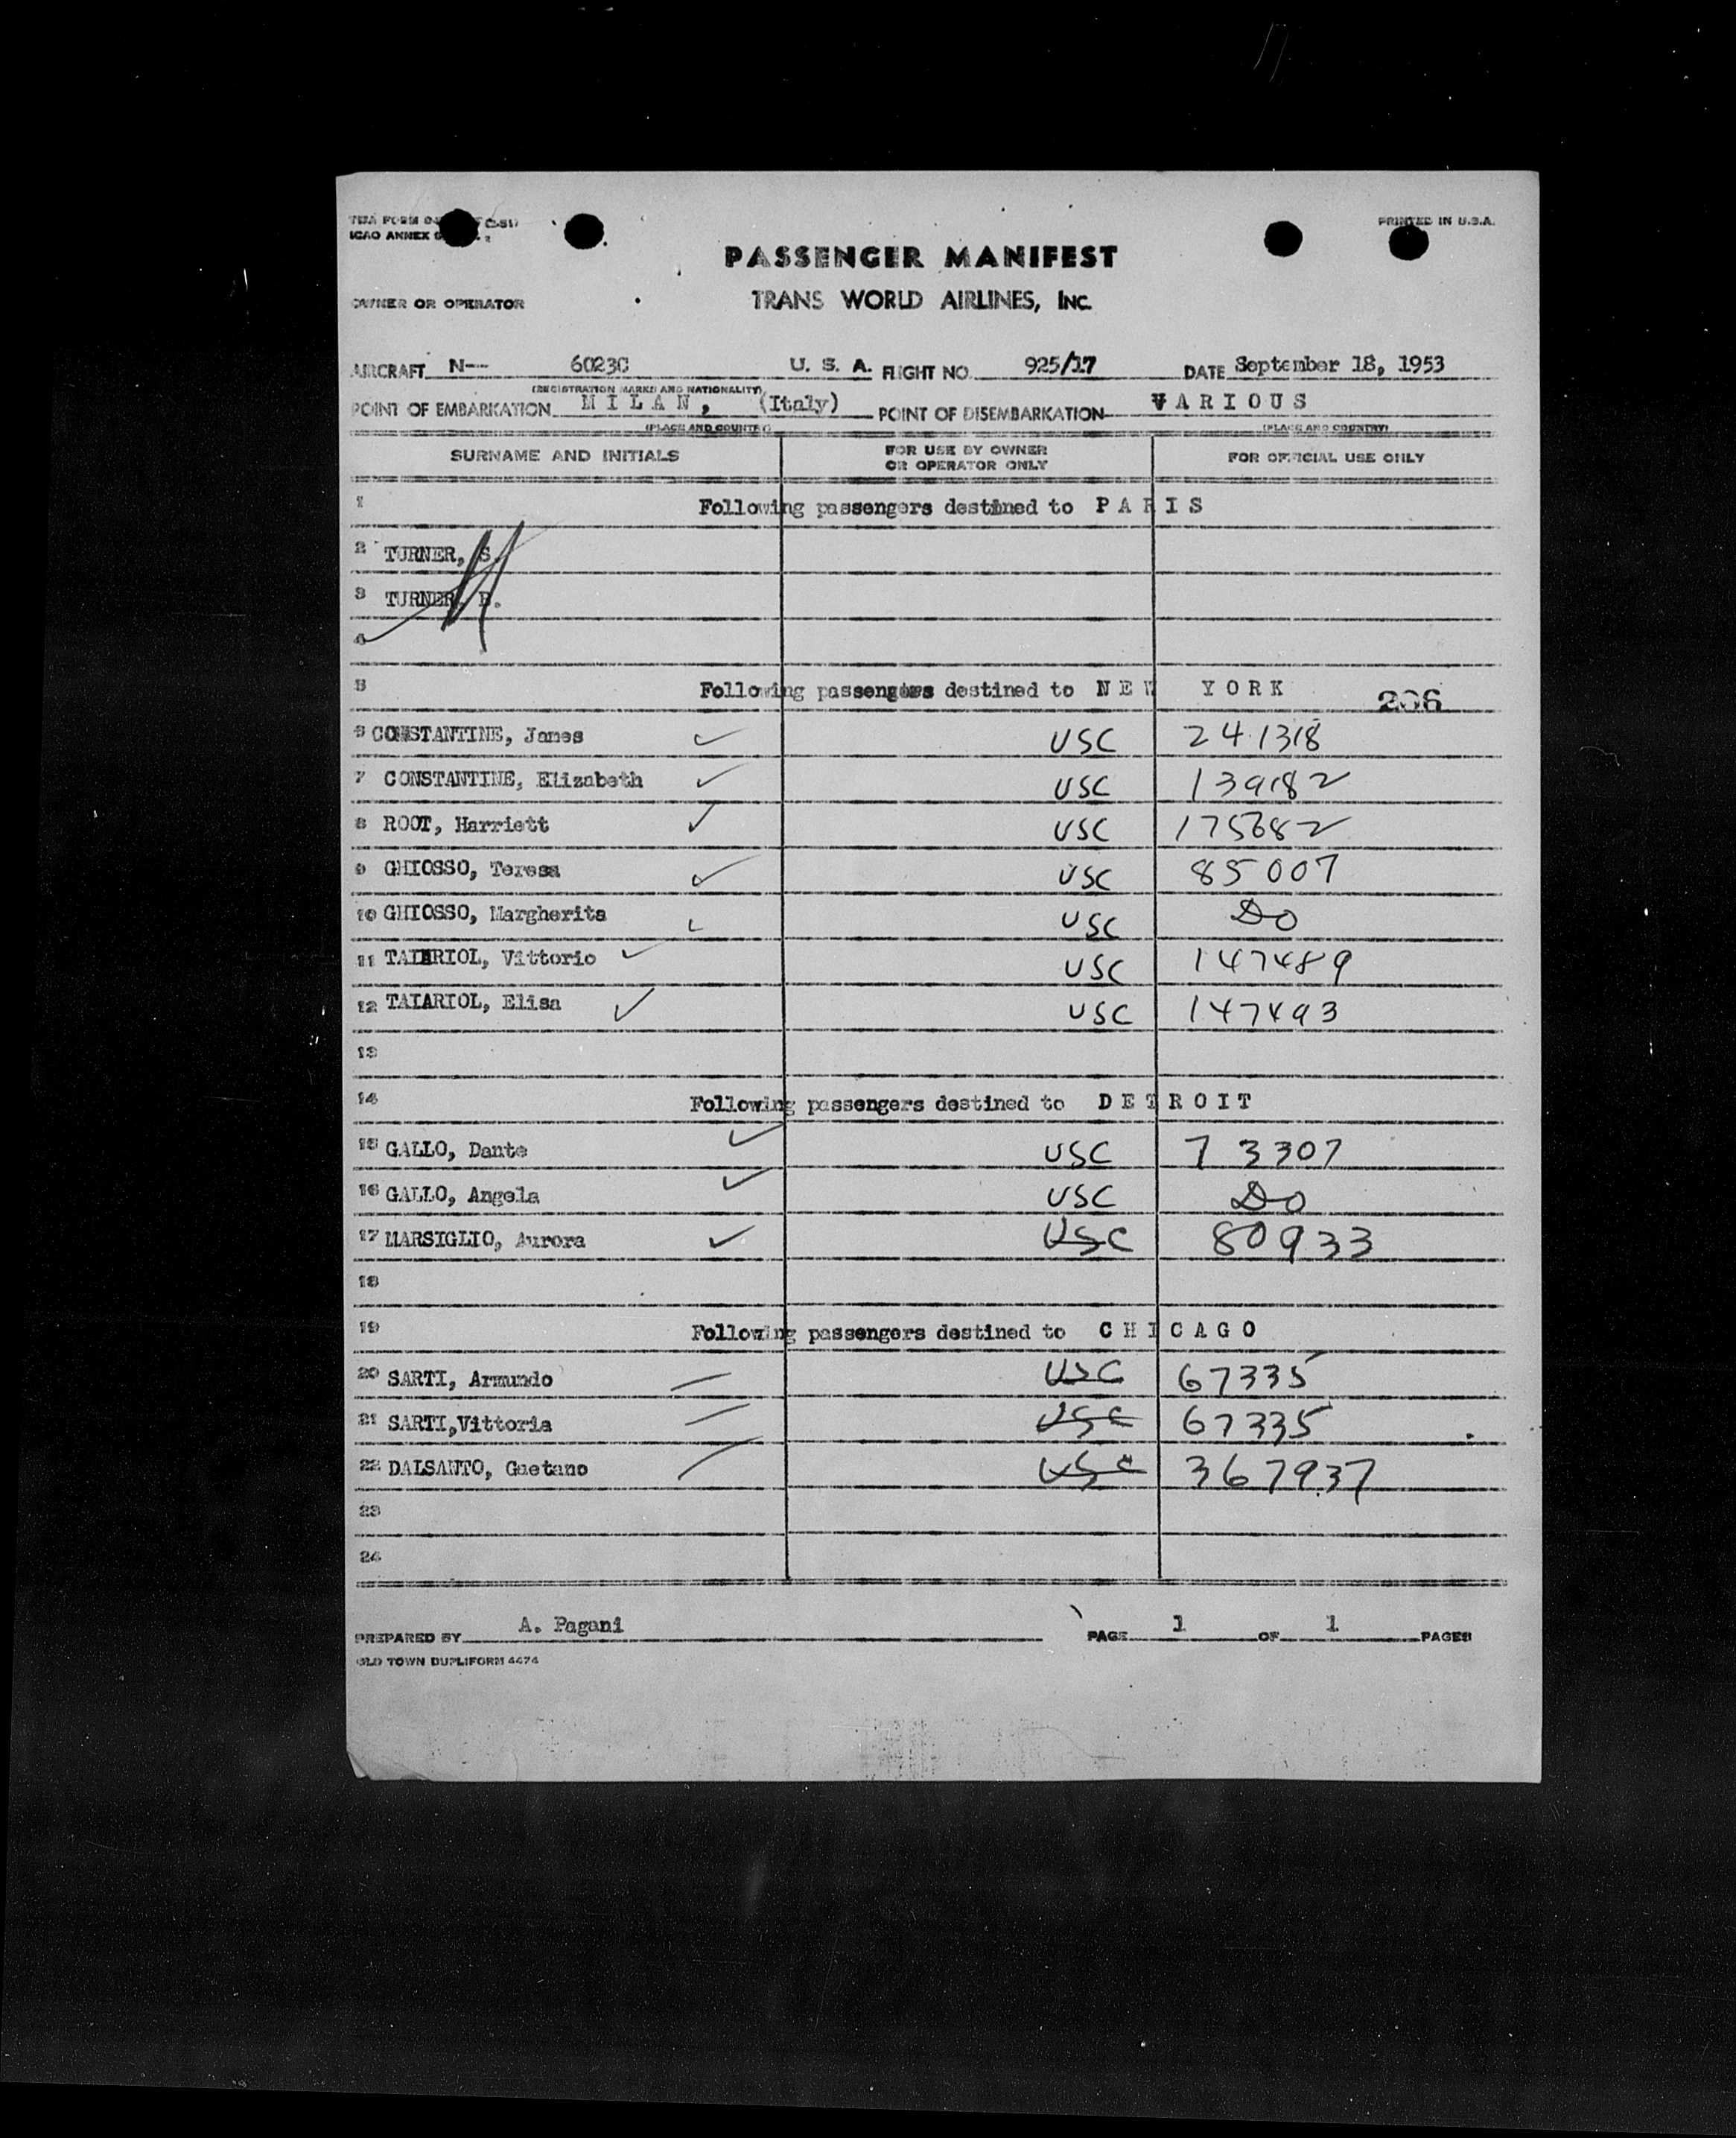 PRINTED IN U.S.A.
ICAO ANNEX
PASSENGER MANIFEST
OWNER OR OPERATOR TRANS WORLD AIRLINES, INC.
AIRCRAFT N-- 6023C U. S. A. FLIGHT NO. 925/17 DATE September 18, 1953
(REGISTRATION MARKS AND NATIONALITY)
POINT OF EMBARKATION M I L A N , (Italy) POINT OF DISEMBARKATION V A R I O U S
(PLACE AND COUNTRY) (PLACE AND COUNTRY)
SURNAME AND INITIALS FOR USE BY OWNER OR OPERATOR ONLY FOR OFFICIAL USE ONLY
1 Following passengers destined to P A R I S
2 TURNER, S.
3 TURNER,
4
5 Following passengers destined to N E W Y O R K 206
6 CONSTANTINE, James USC 241318
7 CONSTANTINE, Elizabeth USC 139182
8 ROOT, Harriett USC 175682
9 GHIOSSO, Teresa USC 85007
10 GHIOSSO, Margherita USC Do
11 TAIARIOL, Vittorio USC 147489
12 TAIARIOL, Elisa USC 147493
13
14 Following passengers destined to D E T R O I T
15 GALLO, Dante USC 73307
16 GALLO, Angela USC Do
17 MARSIGLIO, Aurora USC 80933
18
19 Following passengers destined to C H I C A G O
20 SARTI, Armundo USC 67335
21 SARTI,Vittoria USC 67335
22 DALSANTO, Gaetano USC 367937
23
24
PREPARED BY A. Pagani PAGE 1 OF 1 PAGES
OLD TOWN DUPLIFORM 4474